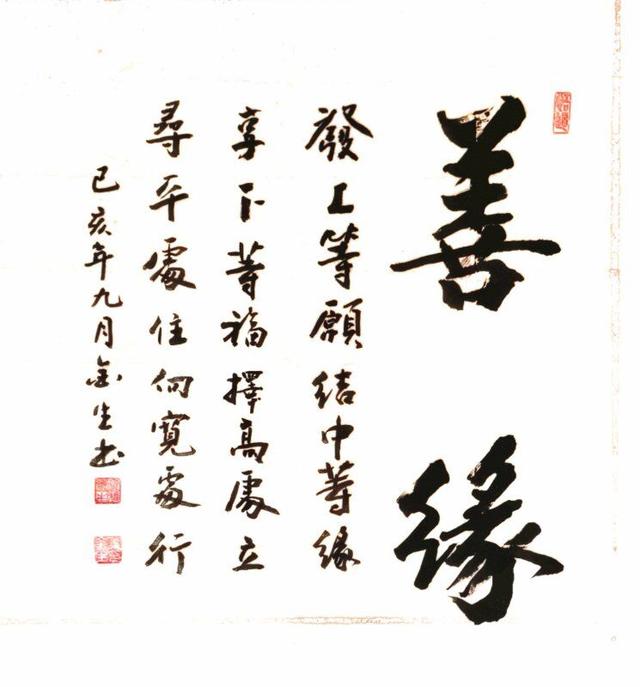 善緣
發上等願結中等緣
享下等福擇高處立
尋平處住向寬處行
己亥年九月金生书